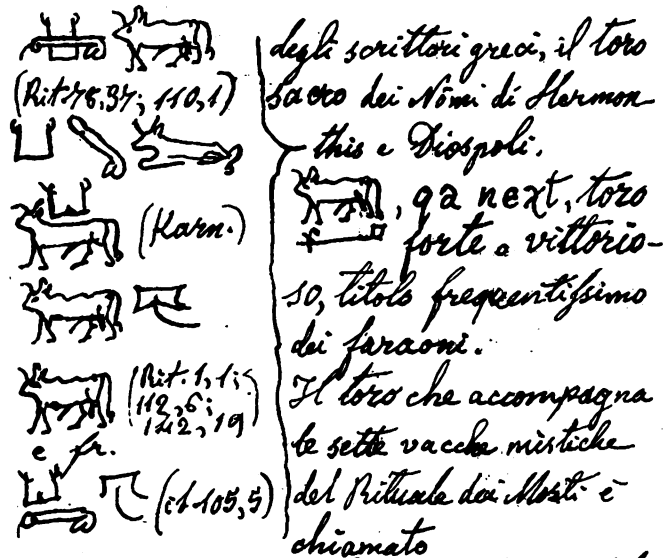 (Rit. 78,37; 110,1)
(Karn.)
(Rit. 1,1;
112,6;
142,19
e fr.
(id 105,5)
degli scrittori greci, il toro
sacro dei Nómi di Hermon
this e Diospoli.
, qa next, toro
forte e vittorio-
so, titolo frequentissimo
dei faraoni.
Il toro che accompagna
le sette vacche mistiche
del Rituale dei Morti è
chiamato